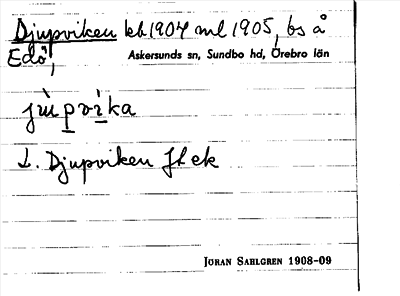 Djupviken kb 1904 ml 1905, bs å
Edö, Askersunds sn, Sundbo hd, Örebro län
jùpvìka
L. Djupviken Jl ek
JÖRAN SAHLGREN 1908-09